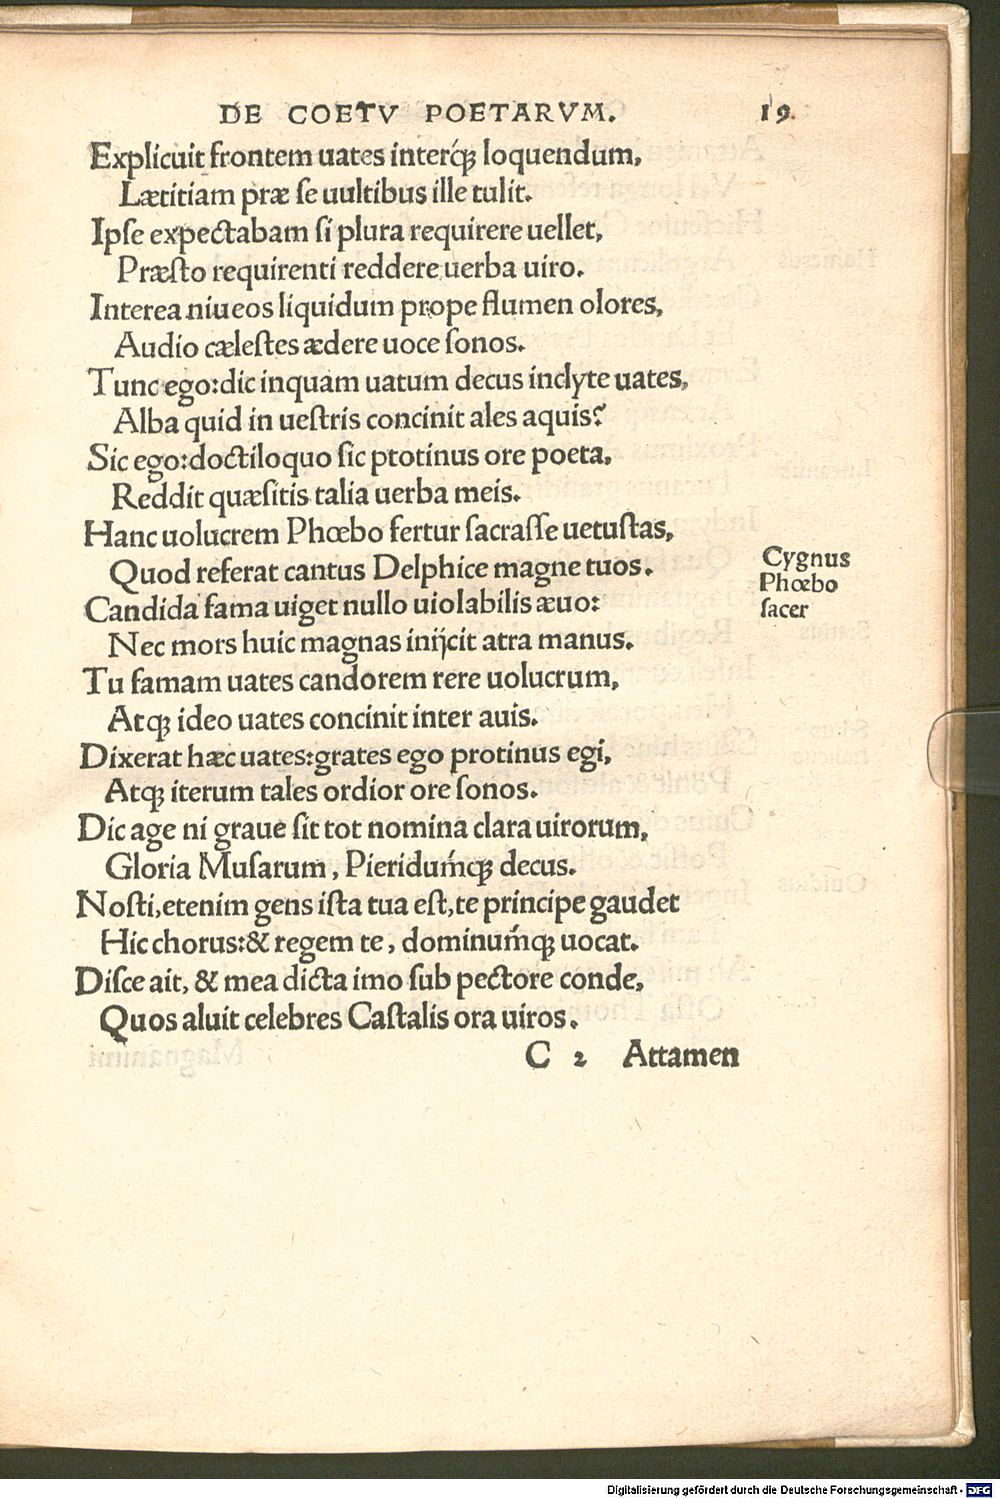 DE COETV POETARVM. 19.
Explicuit frontem uates interq́ꝫ loquendum,
Lætitiam præ se uultibus ille tulit.
Ipse expectabam si plura requirere uellet,
Præsto requirenti reddere uerba uiro.
Interea niueos liquidum prope flumen olores,
Audio cælestes ædere uoce sonos.
Tunc ego:dic inquam uatum decus inclyte uates,
Alba quid in uestris concinit ales aquis?
Sic ego:doctiloquo sic ptotinus ore poeta,
Reddit quæsitis talia uerba meis.
Hanc uolucrem Phœbo fertur sacrasse uetustas,
Quod referat cantus Delphice magne tuos.
Cygnus
Phœbo
sacer
Candida fama uiget nullo uiolabilis æuo:
Nec mors huic magnas inijcit atra manus.
Tu famam uates candorem rere uolucrum,
Atqꝫ ideo uates concinit inter auis.
Dixerat hæc uates:grates ego protinus egi,
Atqꝫ iterum tales ordior ore sonos.
Dic age ni graue sit tot nomina clara uirorum,
Gloria Musarum, Pieriduḿqꝫ decus.
Nosti,etenim gens ista tua est,te principe gaudet
Hic chorus:& regem te, dominuḿqꝫ uocat.
Disce ait, & mea dicta imo sub pectore conde,
Quos aluit celebres Castalis ora uiros.
C 2 Attamen
Digitalisierung gefördert durch die Deutsche Forschungsgemeinschaft - DFG